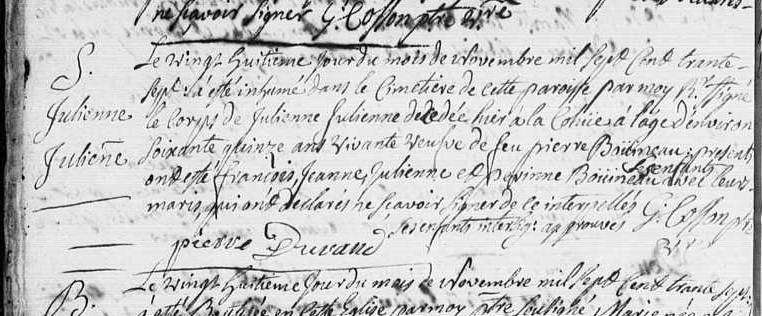 ne sçavoir signer G. Cosson ptre
S.
Julienne
Julienne
Le vingt huitieme jour du mois de Novembre mil sept cent trante-
sept a été inhumé dans le Cimetière de cette paroisse par moy signé
le Corps de Julienne Julienne décédée hier à la à l'age d'environ
soixante quinze ans vivante veufve de feu pierre Bouineau presents
ont esté françois, Jeanne, Julienne et perinne Bouineau ses enfants avec leurs
maris qui ont declarés ne sçavoir signer de ce interpellés G. Cosson ptre
ses enfants interlig: approuvés
pierre Durand
B.
Le vingt huitieme jour du mois de Novembre mil sept cent trante sept
a été en cette Eglise par moy ptre soussigné Marie